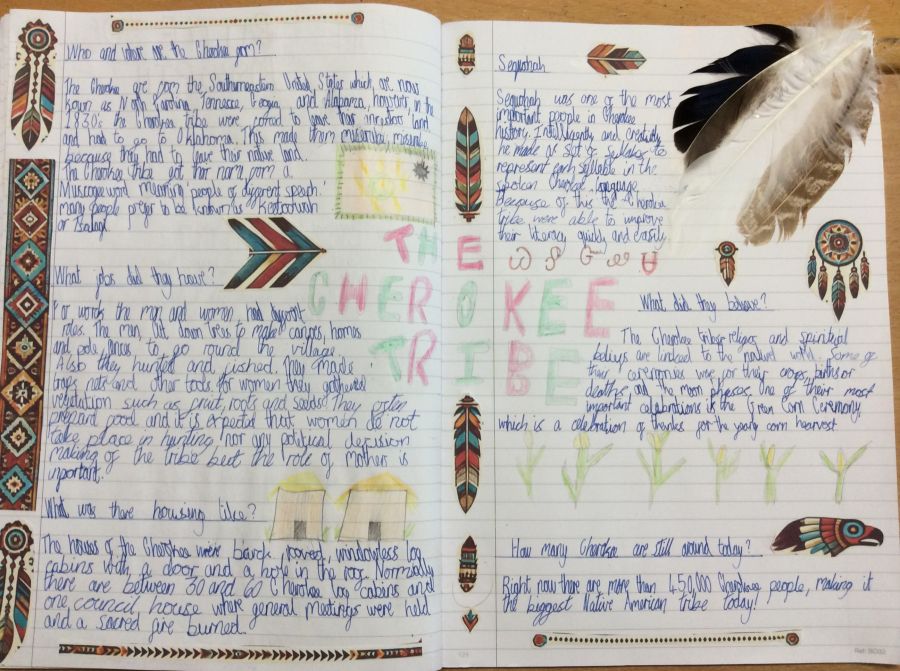 Who and where are the Cherokee from?
The Cherokee are from the Southeastern United States which are now
known as North Carolina, Tennessee, Georgia and Alabama, however, in the
1830s the Cherokee tribe were forced to leave their ancestors' land
and had to go to Oklahoma. This made them
because they had to leave their native land.
The Cherokee tribe got their name from a
Muscogee word meaning 'people of different speech.'
Many people prefer to be known as Keetoowah
or Tsalagi.
What jobs did they have?
For work the men and women had different
roles. The men cut down trees to make canoes, homes
and pole fences to go round the village.
Also they hunted and fished. They made
traps, nets and other tools for women they gathered
vegetation such as fruit, roots and seeds. They often
prepare food and it is expected that women do not
take place in hunting nor any political decision
making of the tribe but the role of mothers is
inportant.
What was there housing like?
The houses of the Cherokee were bark rooved, windowless log
cabins with a door and a hole in the roof. Normally
there are between 30 and 60 Cherokee log cabins and
one council house where general meetings were held
and a sacred fire burned.
THE
CHEROKEE
TRIBE
Sequoyah
Sequoyah was one of the most
important people in Cherokee
history. Intelligently and creatively
he made a set of to
represent each syllable in the
spoken Cherokee language.
Because of this the Cherokee
tribe were able to improve
their literacy quickly and easily.
What did they believe?
The Cherokee tribes religion and spiritual
beliefs are linked to the natural world. Some of
their ceremonies were for their crops, births or
deaths and the moon phases. One of their most
important celebrations is the Green Corn Ceremony
which is a celebration of thanks for the yearly corn hearvest
How many Cherokee are still around today?
Right now there are more than 450,000 Cherokee people, making it
the biggest Native American tribe today!